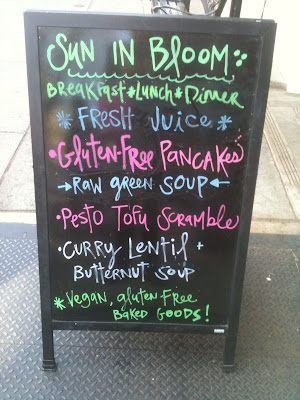 SUN IN BLOOM
BREAKFAST*LUNCH*DINNER
* FRESH JUICE *
•GLUTEN-FREE PANCAKES
→RAW GREEN SOUP←
•PESTO TOFU SCRAMBLE
•CURRY LENTIL +
BUTTERNUT SOUP
*VEGAN, GLUTEN FREE
BAKED GOODS!